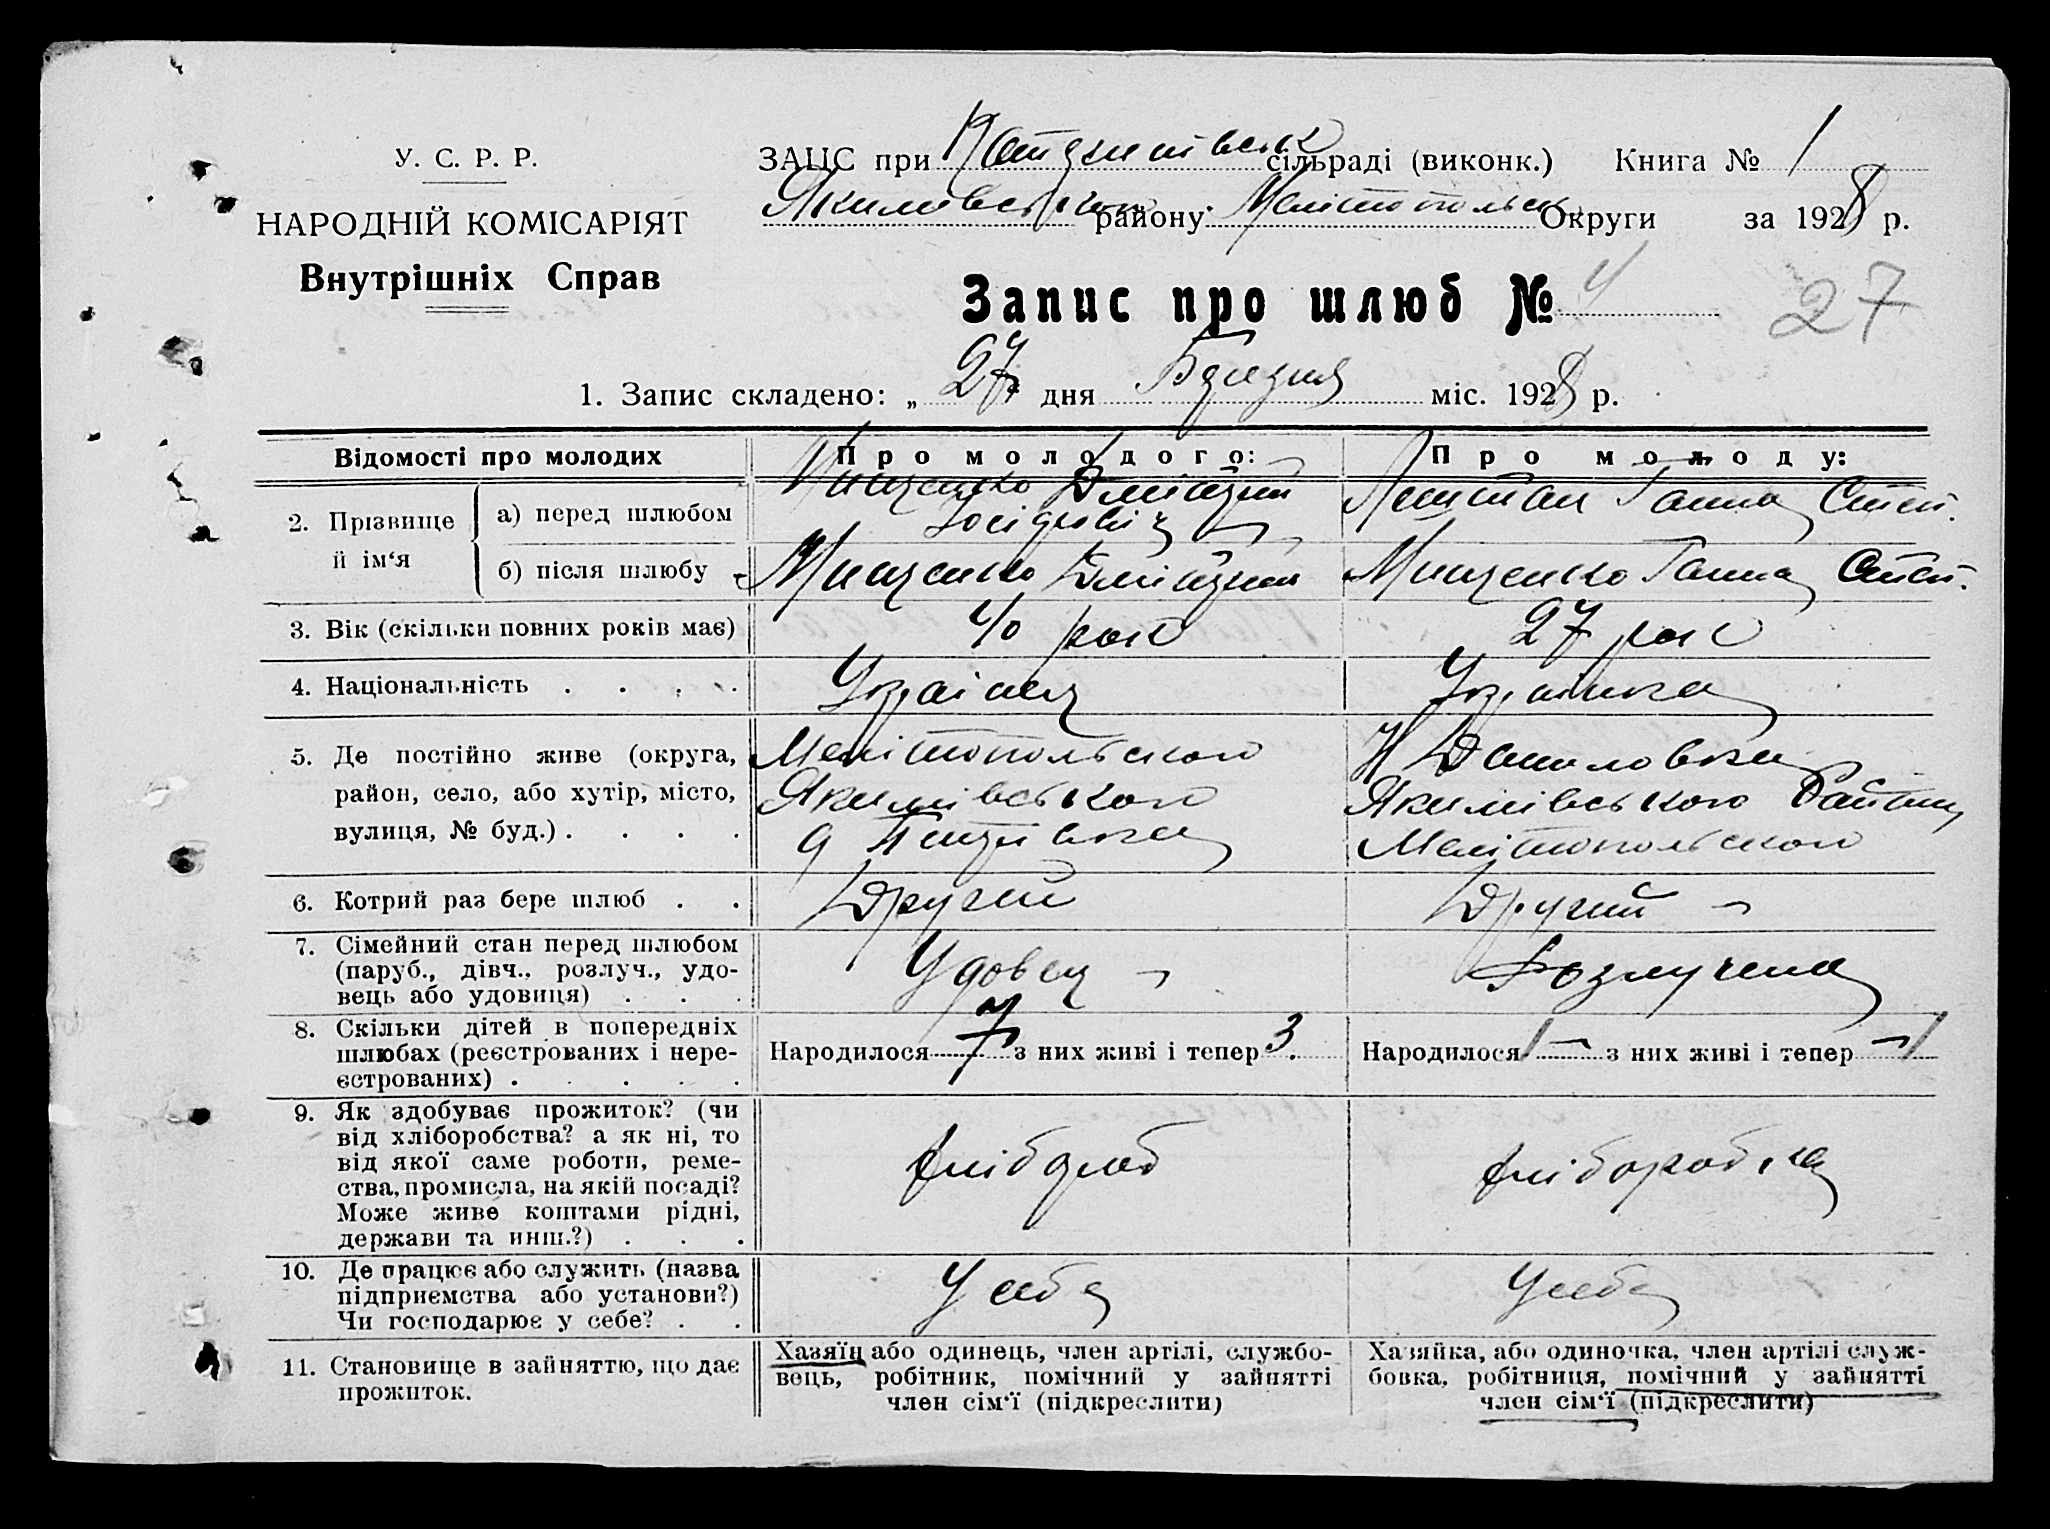 У. С. Р. Р.
НАРОДНІЙ КОМІСАРІЯТ
Внутрішніх Справ
ЗАЦС при сільраді (виконк.) Книга № 1
Якимівського району Мелітопольськ Округи за 1928 р.
Запис про шлюб № 4
27
1. Запис складено: „27“ дня міс. 1928 р.
Відомості про молодих
Про молодого:
Про молоду:
2. Прізвище й ім‘я
а) перед шлюбом
Мищенко Дмітрий
Ганна Степ.
б) після шлюбу
Мищенко Дмітрий
Мищенко Ганна Степ.
3. Вік (скільки повних років має)
40 рок
27 рок
4. Національність . . . .
Украінец
Українка
5. Де постійно живе (округа,
район, село, або хутір, місто,
вулиця, № буд.) . . . .
Мелітопольского
Якимівського
Н Даниловка
Якимівського Району
Мелітопольского
6. Котрий раз бере шлюб . .
Другий
Другий
7. Сімейний стан перед шлюбом
(паруб., дівч., розлуч., удо-
вець або удовиця) . . .
Удовец
Розлучена
8. Скільки дітей в попередніх
шлюбах (реєстрованих і нере-
єстрованих) . . . .
Народилося 7 з них живі і тепер 3.
Народилося 1 з них живі і тепер 1
9. Як здобуває прожиток? (чи
від хліборобства? а як ні, то
від якої саме роботи, реме-
ства, промисла, на якій посаді?
Може живе коштами рідні,
держави та инш.?) . . .
хлібороб
хліборобка
10. Де працює або служить (назва
підприємства або установи?)
Чи господарює у себе? . .
У себе
У себе
11. Становище в зайняттю, що дає
прожиток.
Хазяїн або одинець, член артілі, службо-
вець, робітник, помічний у зайнятті
член сім‘ї (підкреслити)
Хазяйка, або одиночка, член артілі служ-
бовка, робітниця, помічний у зайнятті
член сім‘ї (підкреслити)